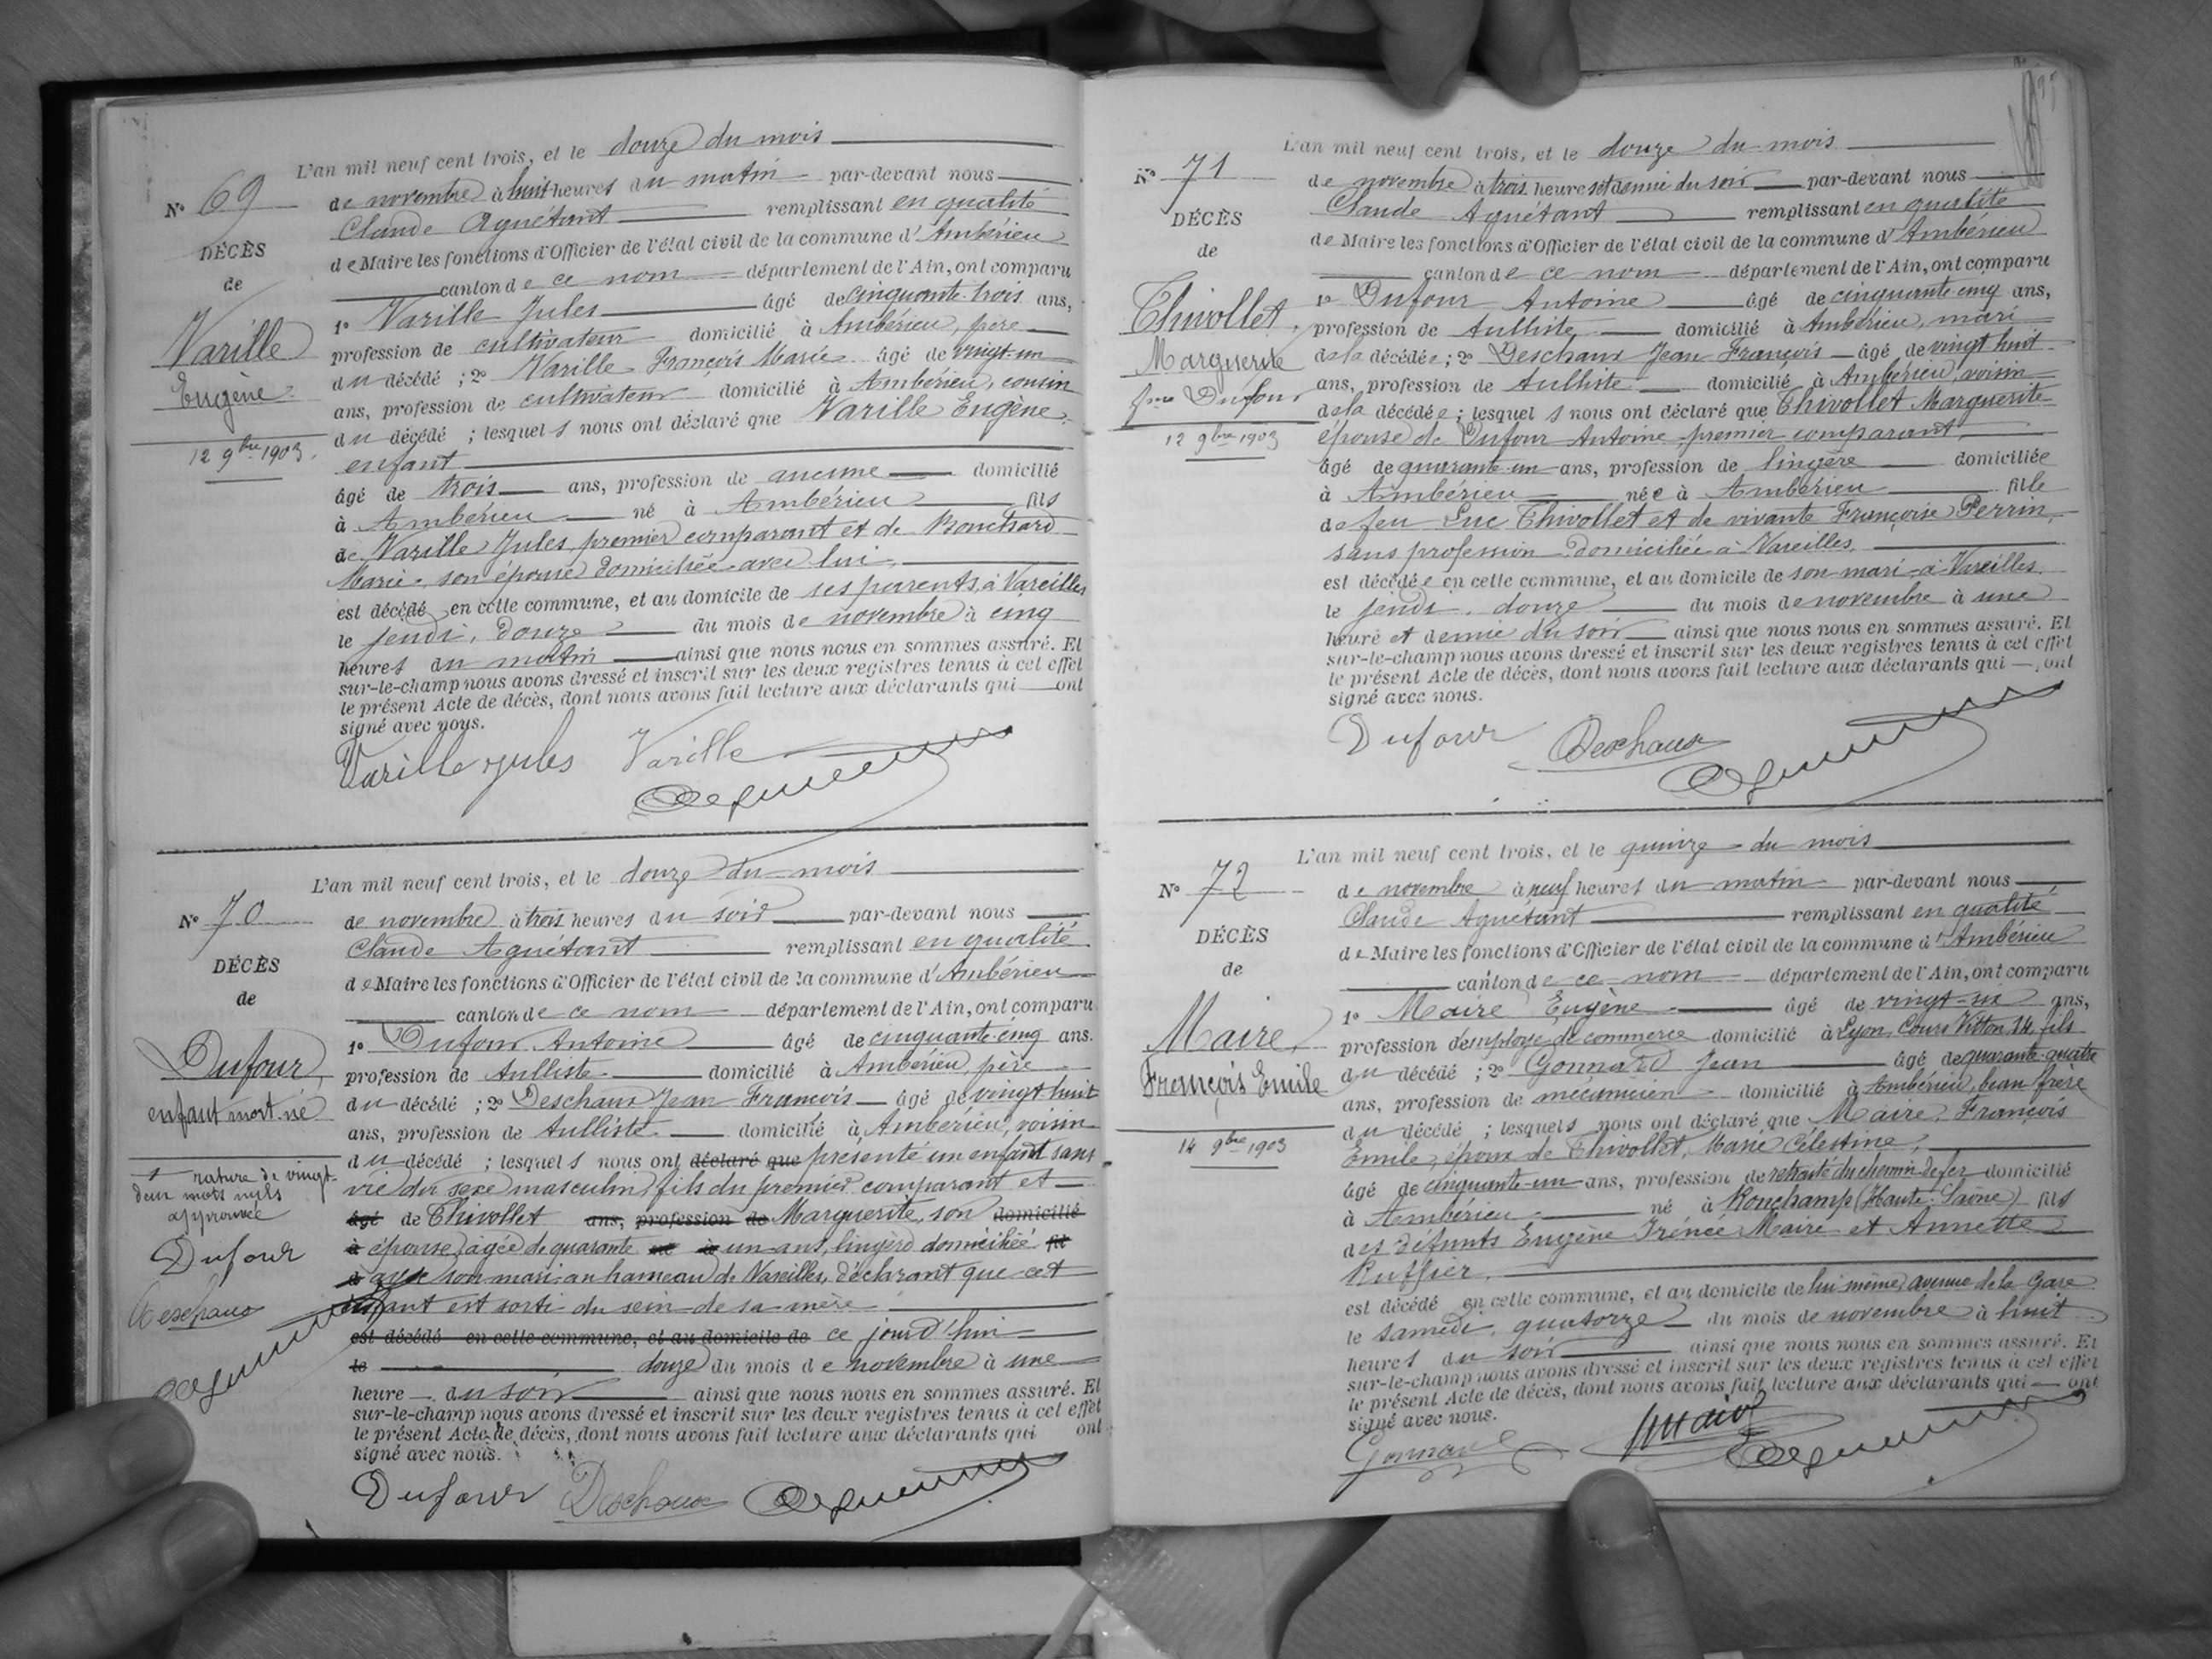 L'an mil neuf cent trois, et le douze du mois
N° 69
de novembre à huit heures du matin par-devant nous
Claude Aguétant remplissant en qualité
DÉCÈS
de Maire les fonctions d'Officier de l'état civil de la commune d'Ambérieu
de
canton de ce nom département de l'Ain, ont comparu
1° Varille Jules âgé de cinquante-trois ans,
Varille
profession de cultivateur domicilié à Ambérieu, père
du décédé ; 2° Varille François Marie âgé de vingt-un
Eugène
ans, profession de cultivateur domicilié à Ambérieu, cousin
du décédé ; lesquels nous ont déclaré que Varille Eugène,
12 9bre 1903.
enfant
âgé de trois ans, profession de aucune domicilié
à Ambérieu né à Ambérieu fils
de Varille Jules, premier comparant et de Bouchard
Marie, son épouse domiciliée avec lui,
est décédé en cette commune, et au domicile de ses parents, à Vareilles
le jeudi, douze du mois de novembre à cinq
heures du matin ainsi que nous nous en sommes assuré. Et
sur-le-champ nous avons dressé et inscrit sur les deux registres tenus à cet effet
le présent Acte de décès, dont nous avons fait lecture aux déclarants qui ont
signé avec nous.
Varille Jules Varille
L'an mil neuf cent trois, et le douze du mois
N° 70
de novembre à trois heures du soir par-devant nous
Claude Aguétant remplissant en qualité
DÉCÈS
de Maire les fonctions d'Officier de l'état civil de la commune d'Ambérieu
de
canton de ce nom département de l'Ain, ont comparu
1° Dufour Antoine âgé de cinquante-cinq ans.
Dufour,
profession de tulliste domicilié à Ambérieu, père
enfant mort-né
du décédé ; 2° Deschaux Jean François âgé de vingt huit
ans, profession de tulliste domicilié à Ambérieu, voisin
du décédé ; lesquels nous ont déclaré que présenté un enfant sans
rature de vingt-
deux mots nuls
approuvée
vie du sexe masculin, fils du premier comparant et
âgé de Thivollet ans, profession de Marguerite, son domicilié
à épouse, âgée de quarante né à un ans, lingère domiciliée fil
Dufour
d avec son mari au hameau de Vareilles, déclarant que cet
Deschaux
enfant est sorti du sein de sa mère
est décédé en cette commune, et au domicile de ce jourd'hui
le douze du mois de novembre à une
heure du soir ainsi que nous nous en sommes assuré. Et
sur-le-champ nous avons dressé et inscrit sur les deux registres tenus à cet effet
le présent Acte de décès, dont nous avons fait lecture aux déclarants qui ont
signé avec nous.
Dufour Deschaux
L'an mil neuf cent trois, et le douze du mois
N° 71
de novembre à trois heures et demie du soir par-devant nous
Claude Aguétant remplissant en qualité
DÉCÈS
de Maire les fonctions d'Officier de l'état civil de la commune d'Ambérieu
de
canton de ce nom département de l'Ain, ont comparu
Thivollet,
1° Dufour Antoine âgé de cinquante-cinq ans,
profession de tulliste domicilié à Ambérieu, mari
Marguerite
de la décédée ; 2° Deschaux Jean François âgé de vingt huit
fme Dufour
ans, profession de tulliste domicilié à Ambérieu, voisin
de la décédée ; lesquels nous ont déclaré que Thivollet Marguerite
12 9bre 1903
épouse de Dufour Antoine premier comparant,
âgé de quarante-un ans, profession de lingère domiciliée
à Ambérieu née à Ambérieu fille
de feu Luc Thivollet et de vivante Françoise Perrin,
sans profession domiciliée à Vareilles,
est décédée en cette commune, et au domicile de son mari à Vareilles.
le jeudi, douze du mois de novembre à une
heure et demie du soir ainsi que nous nous en sommes assuré. Et
sur-le-champ nous avons dressé et inscrit sur les deux registres tenus à cet effet
le présent Acte de décès, dont nous avons fait lecture aux déclarants qui ont
signé avec nous.
Dufour Deschaux
L'an mil neuf cent trois, et le quinze du mois
N° 72
de novembre à neuf heures du matin par-devant nous
Claude Aguétant remplissant en qualité
DÉCÈS
de Maire les fonctions d'Officier de l'état civil de la commune d'Ambérieu
de
canton de ce nom département de l'Ain, ont comparu
1° Maire Eugène âgé de vingt-six ans,
Maire,
profession d'employé de commerce domicilié à Lyon, Cours Vitton 14, fils
François Emile
du décédé ; 2° Gonnard Jean âgé de quarante-quatre
ans, profession de mécanicien domicilié à Ambérieu, beau frère
du décédé ; lesquels nous ont déclaré que Maire, François
14 9bre 1903
Emile, époux de Thivollet, Marie Célestine,
âgé de cinquante-un ans, profession de retraité du chemin de fer domicilié
à Ambérieu né à Ronchamp (Haute-Saône) fils
des défunts Eugène Irénée Maire et Annette
Ruffier,
est décédé en cette commune, et au domicile de lui même, avenue de la Gare
le samedi, quatorze du mois de novembre à huit
heures du soir ainsi que nous nous en sommes assuré. Et
sur-le-champ nous avons dressé et inscrit sur les deux registres tenus à cet effet
le présent Acte de décès, dont nous avons fait lecture aux déclarants qui ont
signé avec nous.
Gonnard Maire